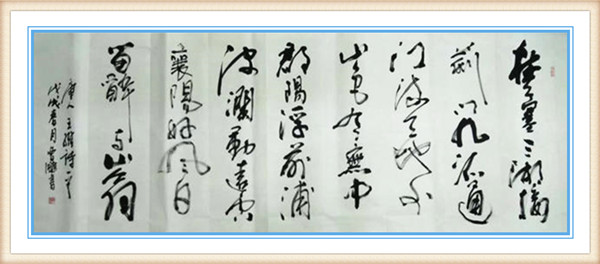 楚塞三湘接
荊門九派通
江流天地外
山色有無中
郡浮前浦
波瀾動遠空
襄陽好風日
留醉与山翁
唐人王維詩一首
戊戌春月書